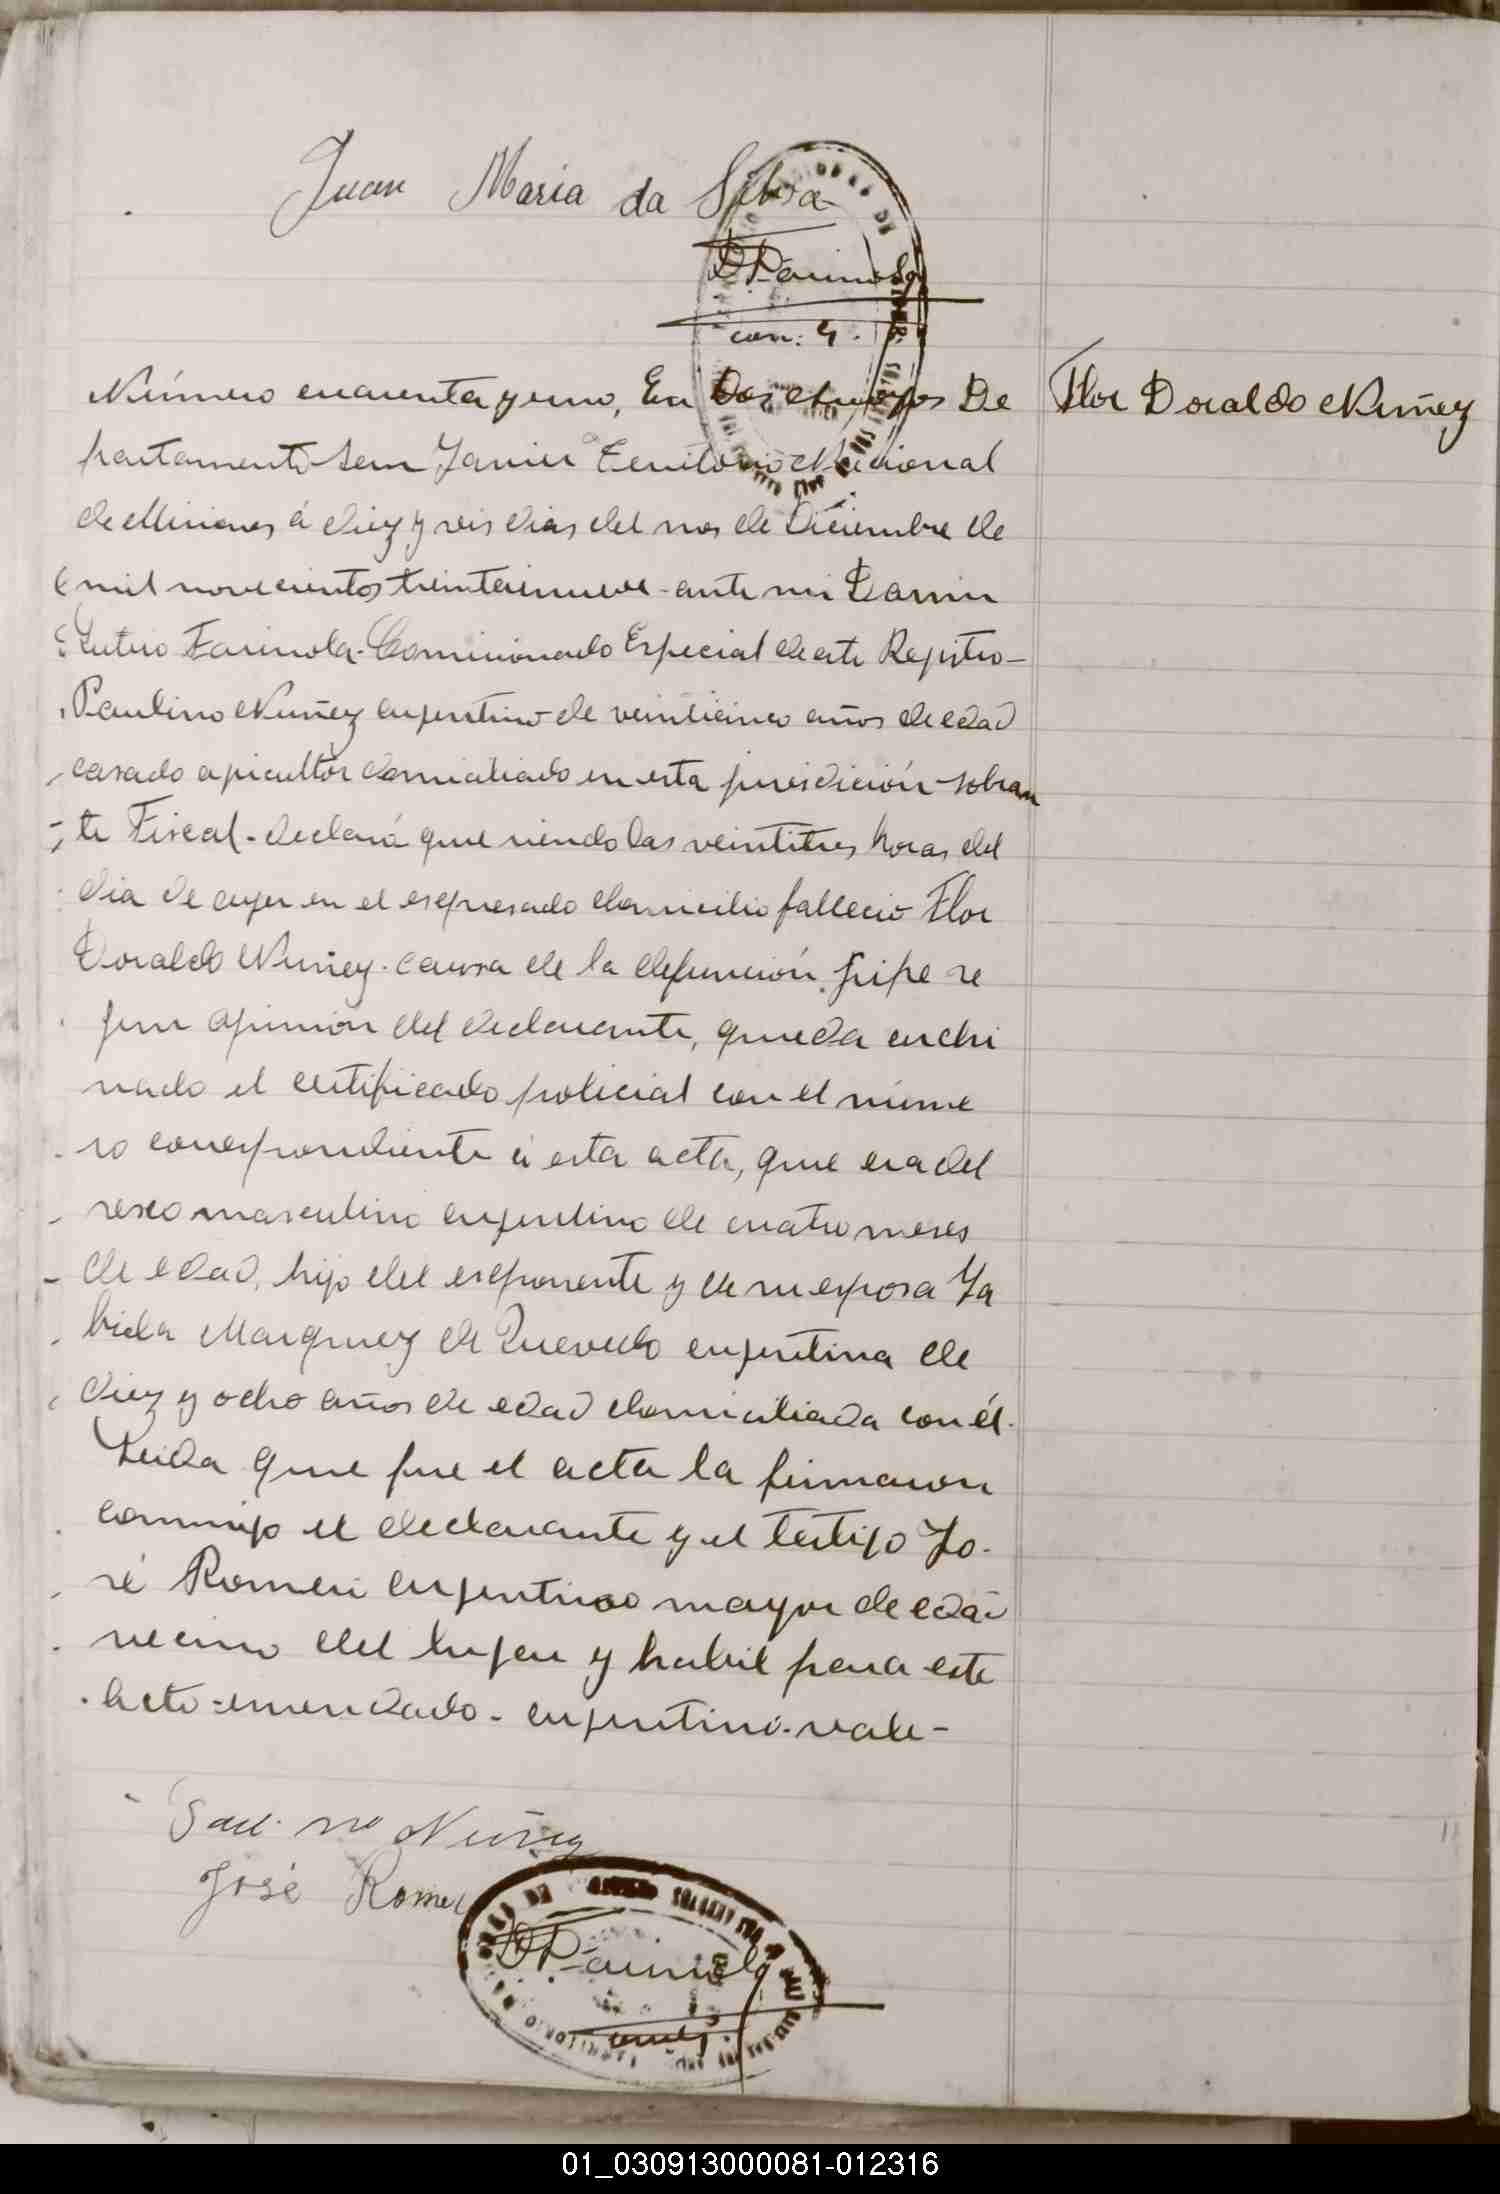 Juan Maria da Silva
DFarinola
com: 4.
Número cuarenta y uno, En Dos Arroyos De
partamento San Javier Territorio Nacional
de Misiones á diez y seis dias del mes de Diciembre de
mil novecientos treintainueve - ante mi Darvin
Farinola - Comisionado Especial de este Rejistro -
Paulino Nuñez arjentino de veinticinco años de edad
casado agricultor domiciliado en esta jurisdición - sobran
te Fiscal - declaró que siendo las veintitres horas del
dia de ayer en el espresado domicilio fallecio Flor
Doraldo Nuñez - causa de la defunción, gripe se
gun opinion del declarante, queda archi
vado el certificado policial con el nume
ro correspondiente á esta acta, que era del
sexo masculino arjentino de cuatro meses
de edad, hijo del esponente y de su esposa Ja
biela Marquez de Quevedo arjentina de
diez y ocho años de edad domiciliada con él.
Leida que fue el acta la firmaron
conmigo el declarante y el testigo Jo-
sé Romeri arjentino mayor de edad
vecino del lugar y habil para este
acto = enmendado - arjentino - vale -
Flor Doraldo Nuñez
Nuñez
José Romer
DFarinola
TERRITORIO